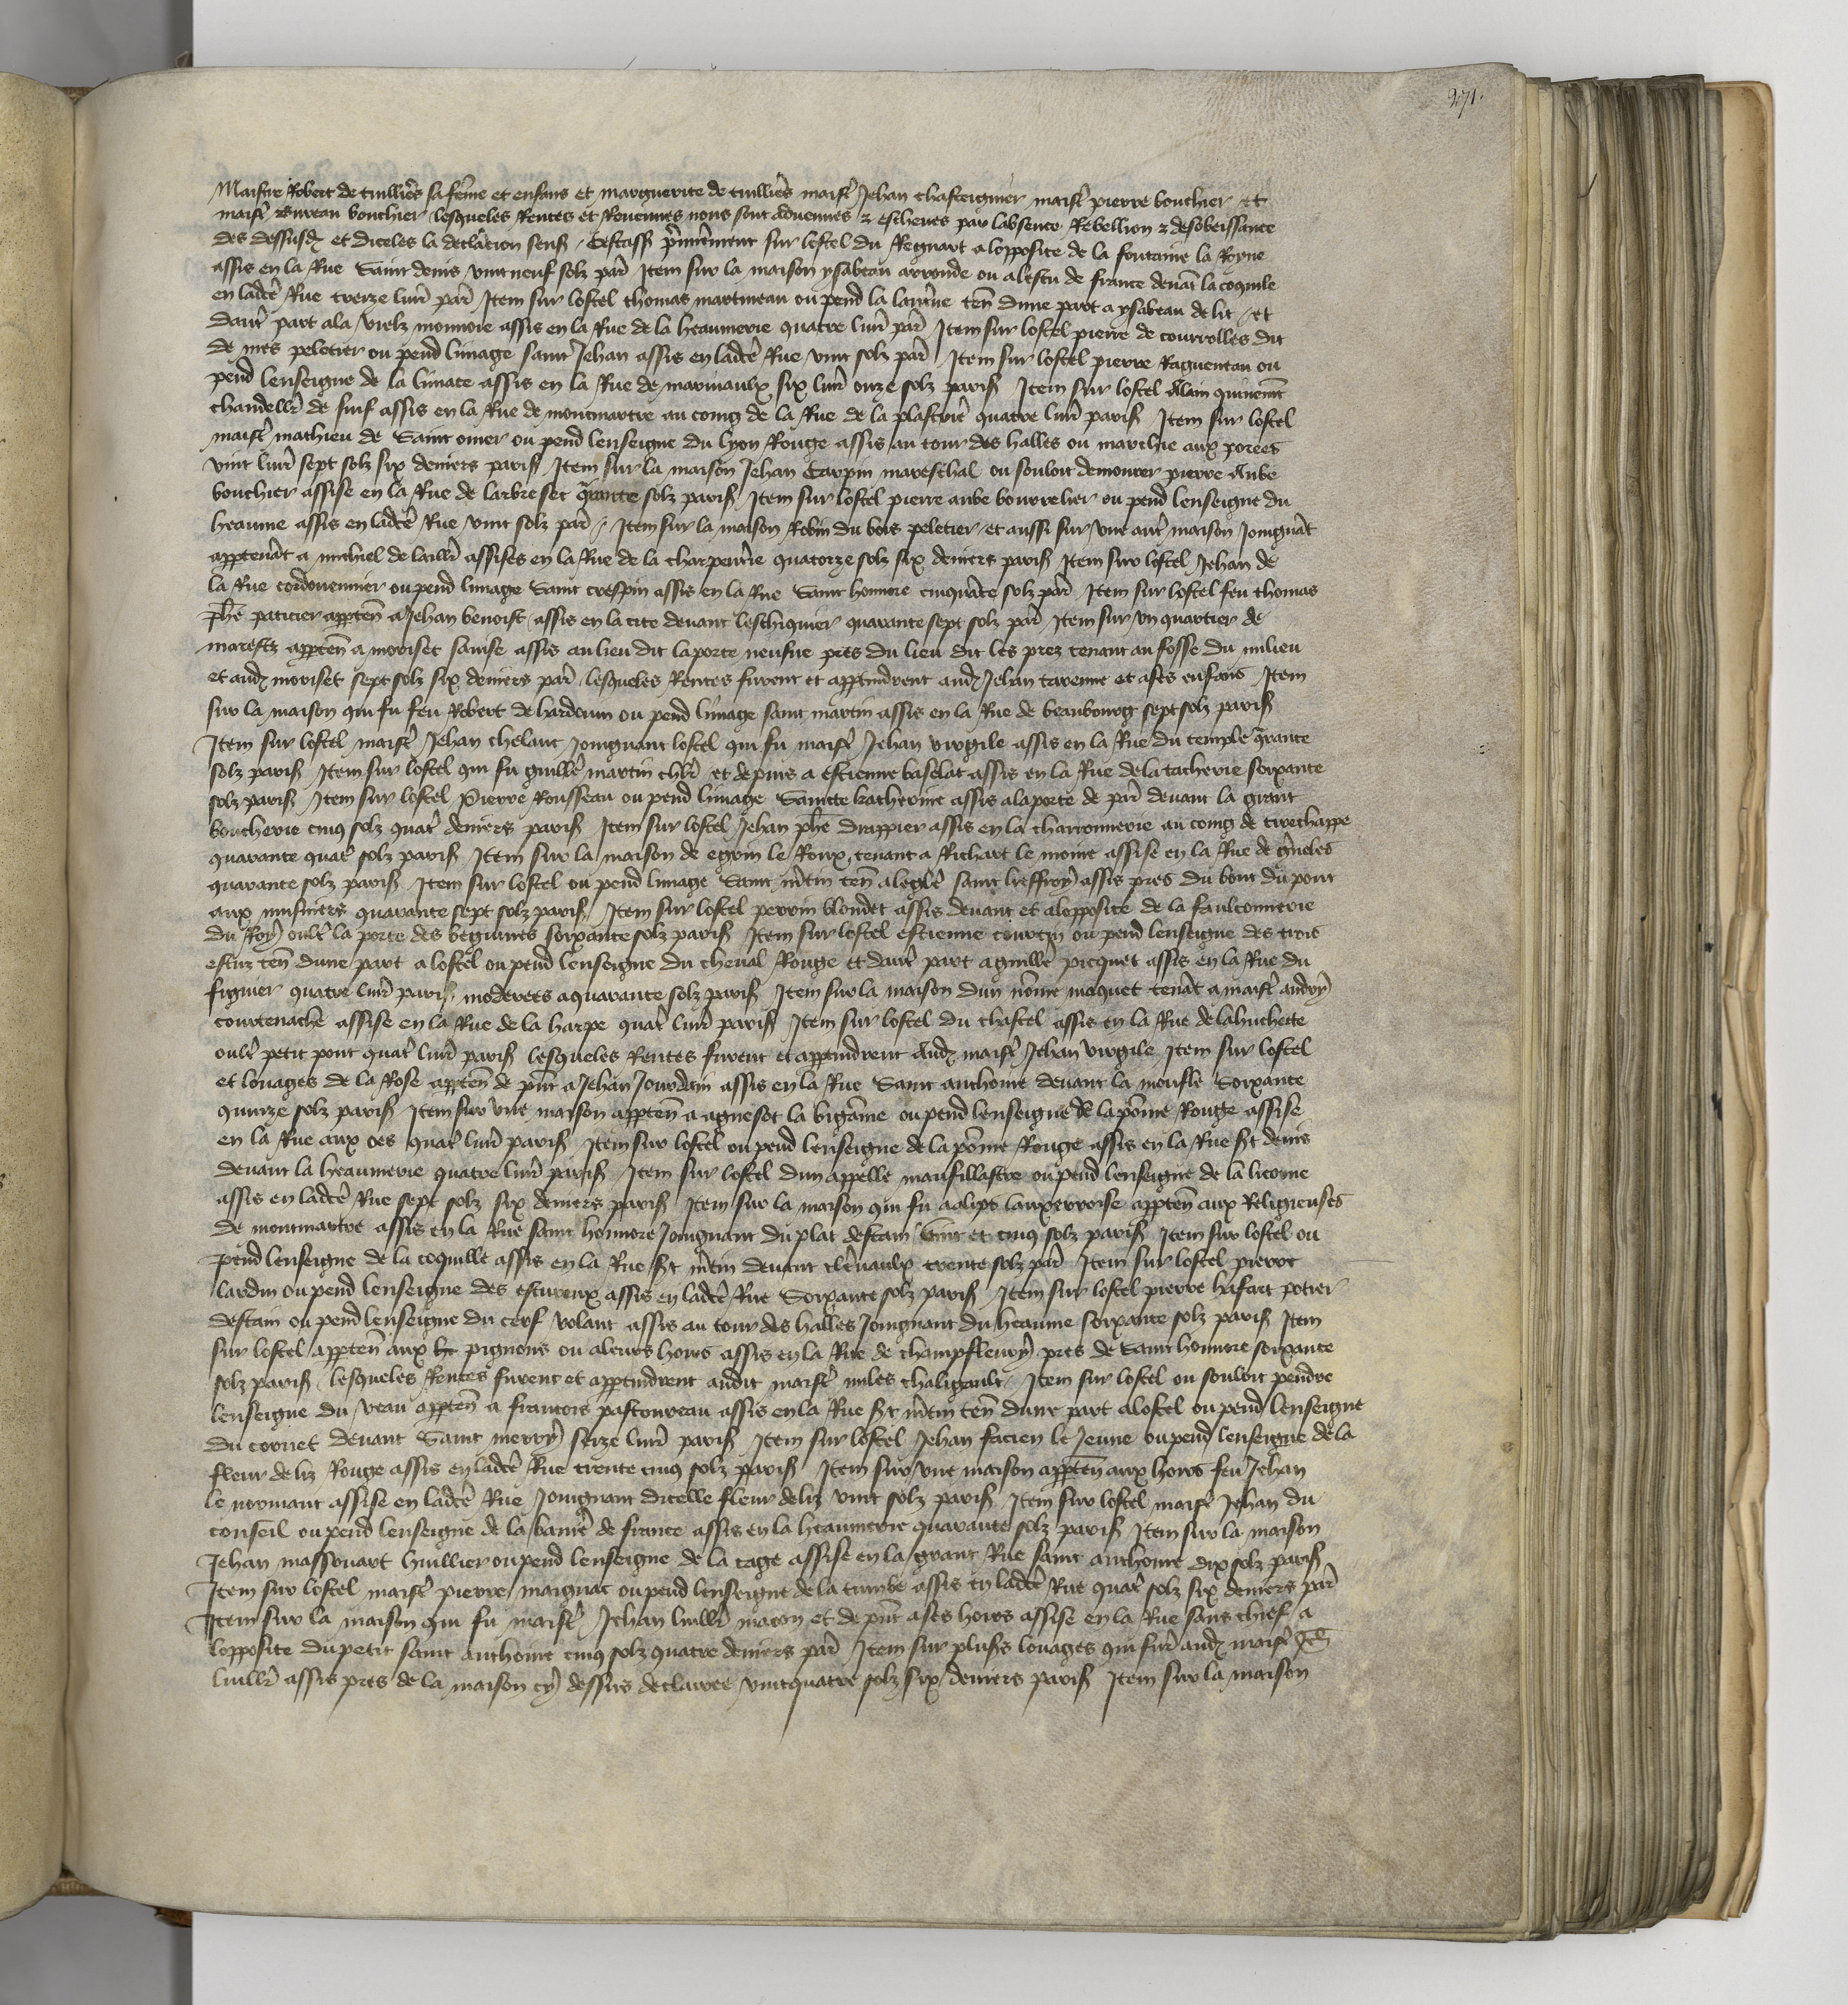 271.
Maistre Robert de tuillieres sa feme et enfans et marguerite de tuillieres maistre Jehan chasteignier maistre pierre bouchier et
maistre Bureau bouchier lesqueles Rentes et Revenues nous sont advenues & escheues par labsence Rebellion & desobeissance
des dessusd et diceles la declaracion sens / Cestass premierement sur lostel du Regnart a lopposite de la fontaine la Royne
assis en la Rue Saint denis vint neuf solz par Item sur la maison ysabeau arronde ou a lescu de france devat la coquile
en ladce Rue treize livr par Item sur lostel thomas martineau ou pend la lanterne ten dune part a ysabeau de lit / et
dautre part ala vielz monnoie assis en la Rue de la heaumerie quatre livr par Item sur lostel pierre de courrolles dit
de mes peletier ou pend limage saint Jehan assis en ladce Rue vint solz par Item sur lostel pierre Ragueneau ou
pend lenseigne de la limace assis en la Rue de marivaulx six livr onze solz paris Item sur lostel Alain
chandellier de suif assis en la Rue de montmartre au coing de la Rue de la plastriere quatre livr paris Item sur lostel
maistre mathieu de Saint omer ou pend lenseigne du lyon Rouge assis au tour des halles ou marchie aux porees
vint livr sept solz six deniers paris Item sur la maison Jehan Carpin mareschal ou souloit demourer pierre Aube
bouchier assise en la Rue de larbre sec qrante solz paris Item sur lostel pierre aube bourrelier ou pend lenseigne du
heaume assis en ladce Rue vint solz par / Item sur la maison Robin du bois peletier et aussi sur une autre maison Joingnat
apptenat a michiel de lailler assises en la Rue de la charpenterie quatorze solz six deniers paris Item sur lostel Jehan de
la Rue cordouennier ou pend limage Saint crespin assis en la Rue Saint honnore cinquate solz par Item sur lostel feu thomas
phe paticier appten a Jehan benoist / assis en la cite devant leschiquier quarante sept solz par Item sur un quartier de
marestz appten a moriset sanise assis au lieu dit la porte neufue pres du lieu dit les prez tenant au fosse du milieu
et aud moriset sept solz six deniers par lesqueles Rentes furent et apptindrent aud Jehan tarenne et a ses enfans Item
sur la maison qui fu feu Robert de harderun ou pend limage saint martin assis en la Rue de beaubourg sept solz paris
Item sur lostel maistre Jehan chelant Joingnant lostel qui fu maistre Jehan virgile assis en la Rue du temple qrante
solz paris Item sur lostel qui fu guille martin chlr et depuis a estienne baselat assis en la Rue de la tacherie soixante
solz paris Item sur lostel Pierre Rousseau ou pend limage Saincte katherine assis a la porte de par devant la grant
boucherie cinq solz quatre deniers paris Item sur lostel Jehan phe drappier assis en la charronnerie au coing de tirechappe
quarante quatre solz paris Item sur la maison de egroin le Roux tenant a Richart le moine assise en la Rue de gneles
quarante solz paris Item sur lostel ou pend limage Saint mtin ten a leglise saint lieffroy assis pres du bout du pont
aux musniers quarante sept solz paris Item sur lostel perrin blondet assis devant et a lopposite de la faulconnerie
du Roy oultre la porte des beguines soixante solz paris Item sur lostel estienne courtin ou pend lenseigne des trois
estuz ten dune part a lostel ou pend lenseigne du cheval Rouge et dautre part a guille picquet assis en la Rue du
figuier quatre livr paris moderees a quarante solz paris Item sur la maison dun nome maquet tenat a maistre andry
courtenache assise en la Rue de la harpe quatre livr paris Item sur lostel du chastel assis en la Rue de la huchette
oultre petit pont quatre livr paris lesqueles Rentes furent et apptindrent Aud maistre Jehan virgile Item sur lostel
et louages de la Rose appten de pnt a Jehan Jourdain assis en la Rue Saint anthoine devant la moufle Soixante
quinze solz paris Item sur une maison appten a agnesot la bigame ou pend lenseigne de la pome Rouge assise
en la Rue aux oes quatre livr paris Item sur lostel ou pend lenseigne de la pome Rouge assis en la Rue st denis
devant la heaumerie quatre livr paris Item sur lostel dun appelle maufillastre ou pend lenseigne de la licorne
assis en ladce Rue sept solz six deniers paris Item sur la maison qui fu aalips lauxerroise appten aux Religieuses
de montmartre assis en la Rue saint honnore Joingnant du plat destain vint et cinq solz paris Item sur lostel ou
pend lenseigne de la coquille assis en la Rue st mtin devant clervaulx trente solz par Item sur lostel pierre
lardin ou pend lenseigne des estuveux assis en ladce Rue Soixante solz paris Item sur lostel pierre hasart potier
destain ou pend lenseigne du cerf volant assis au tour des halles Joingnant du heaume soixante solz paris Item
sur lostel appten aux pignons ou a leurs hoirs assis en la Rue de champfleury pres de Saint honnore soixante
solz paris lesqueles Rentes furent et apptindrent audit maistre miles chaligault / Item sur lostel ou souloit pendre
lenseigne du veau appten a francois pastoureau assis en la Rue st mtin ten dune part a lostel ou pend lenseigne
du cornet devant Saint merry seize livr paris Item sur lostel Jehan facien le Jeune ou pend lenseigne de la
fleur de liz Rouge assis en ladce Rue trente cinq solz paris Item sur une maison appten aux hoirs feu Jehan
le normant assise en ladce Rue Joingnant dicelle fleur de liz vint solz paris Item sur lostel maistre Jehan du
conseil ou pend lenseigne de la baniere de france assis en la heaumerie quarante solz paris Item sur la maison
Jehan massouart huillier ou pend lenseigne de la cage assise en la grant Rue saint anthoine dix solz paris
Item sur lostel maistre pierre maignac ou pend lenseigne de la tumbe assis en ladce Rue quatre solz six deniers par
Item sur la maison qui fu maistre Jehan luillier macon et de pnt a ses hoirs assise en la Rue sans chief a
lopposite du petit saint anthoine cinq solz quatre deniers par Item sur plusrs louages qui furent aud maistre Jeh
luillier assis pres de la maison cy dessus declairee vint quatre solz six deniers paris Item sur la maison